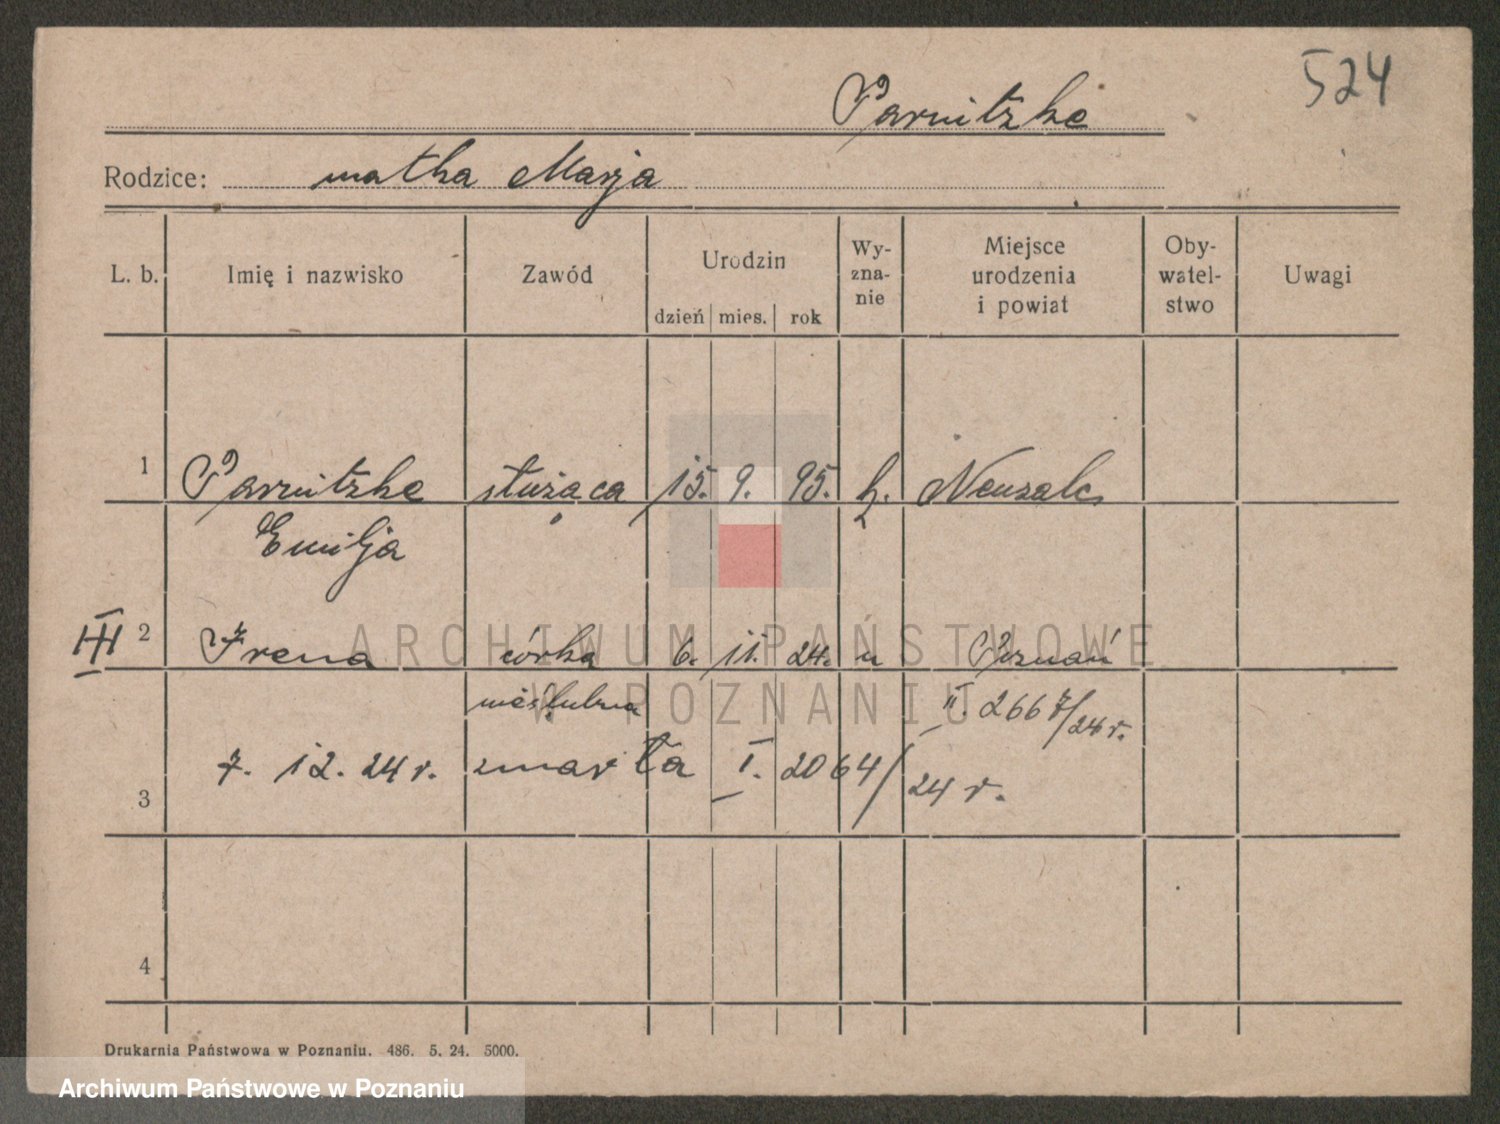 524
Parnitzke
Rodzice: matka Marja
L. b. Imię i nazwisko Zawód Urodzin dzień mies. rok Wy-zna-nie Miejsce urodzenia i powiat Oby-watel-stwo Uwagi
1 Parnitzke służąca 15. 9. 95. k. Neusalc
Emilja
III 2 Irena córka 6. 11. 24. n Poznań
nieślubna II. 2667/24 r.
7. 12. 24 r. zmarła I. 2064/24 r.
3
4
Drukarnia Państwowa w Poznaniu. 486. 5. 24. 5000.
ARCHIWUM PAŃSTWOWE
W POZNANIU
Archiwum Państwowe w Poznaniu